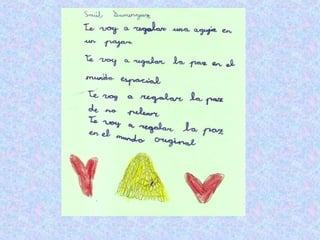 Saúl Dominguez
Te voy a regalar una aguja en
un pajar
Te voy a regalar la paz en el
mundo espacial
Te voy a regalar la paz
de no pelear
Te voy a regalar la paz
en el mundo original